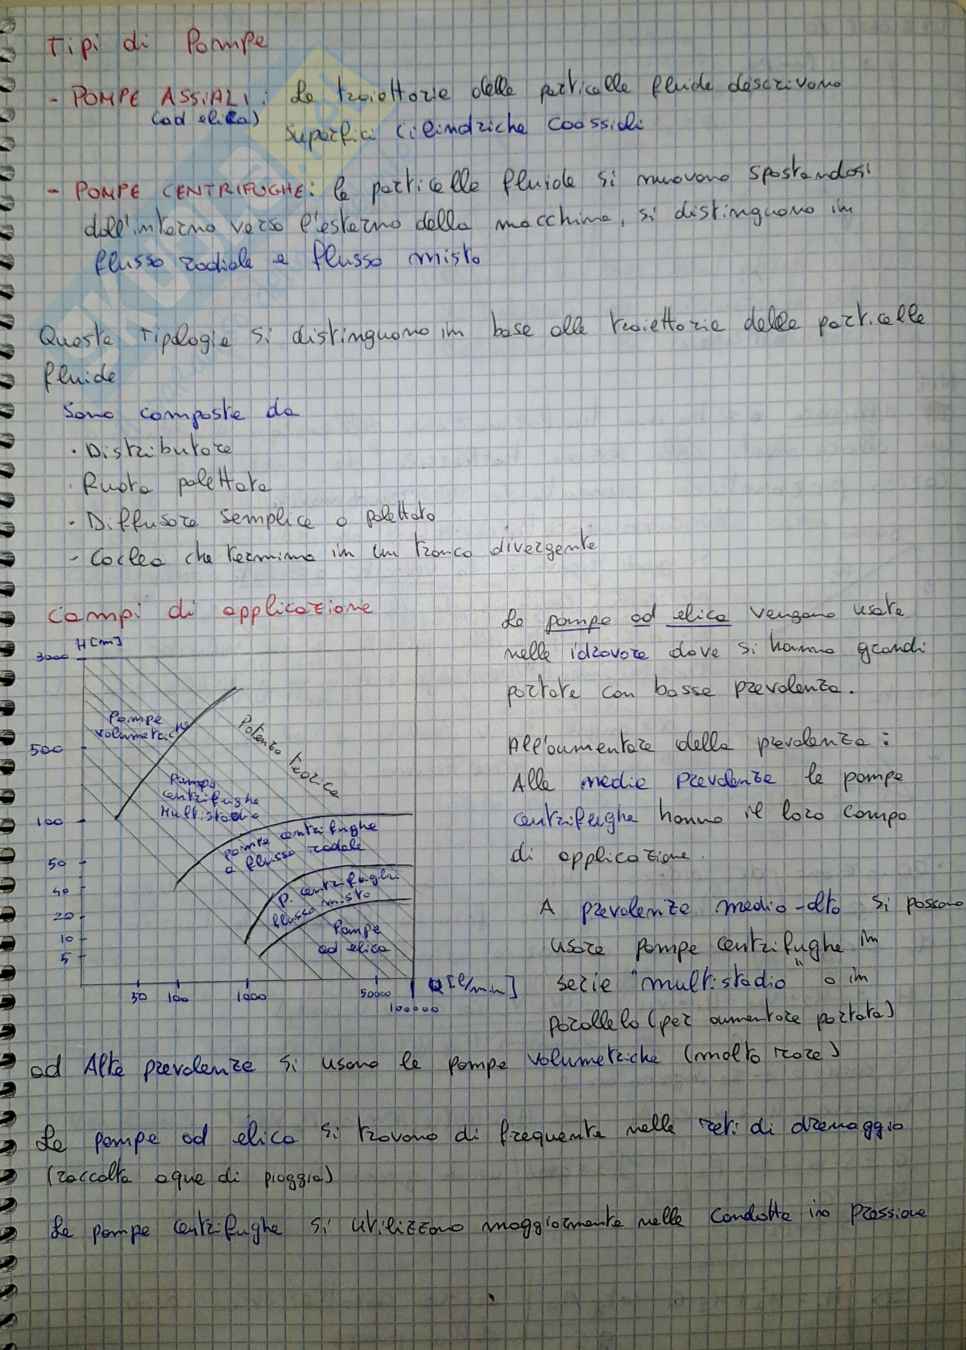 Tipi di Pompe
- POMPE ASSIALI: Le traiettorie delle particelle fluide descrivono
(ad elica)
superfici cilindriche coassiali
- POMPE CENTRIFUGHE: le particelle fluide si muovono spostandosi
dall'interno verso l'esterno della macchina, si distinguono in
flusso radiale e flusso misto
Queste tipologie si distinguono in base alle traiettorie delle particelle
fluide
Sono composte da
· Distributore
· Ruota palettata
· Diffusore semplice o palettato
- Coclea che termina in un tronco divergente
Campi di applicazione
H[m]
3000
500
100
50
40
20
10
5
Pompe
volumetriche
Potenza teorica
Pompe
centrifughe
Multistadio
pompe centrifughe
a flusso radiale
P. centrifughe
flusso misto
Pompe
ad elica
50 100 1000 50000
100000
Q[l/min]
Le pompe ad elica vengono usate
nelle idrovore dove si hanno grandi
portate con basse prevalenze.
All'aumentare della prevalenza:
Alle medie prevalenze le pompe
centrifughe hanno il loro campo
di applicazione.
A prevalenze medio-alto si possono
usare pompe centrifughe in
serie "multistadio" o in
parallelo (per aumentare portata)
ad Alte prevalenze si usano le pompe volumetriche (molto rare)
Le pompe ad elica si trovano di frequente nelle reti di drenaggio
(raccolta aque di pioggia)
Le pompe centrifughe si utilizzano maggiormente nelle condotte in pressione